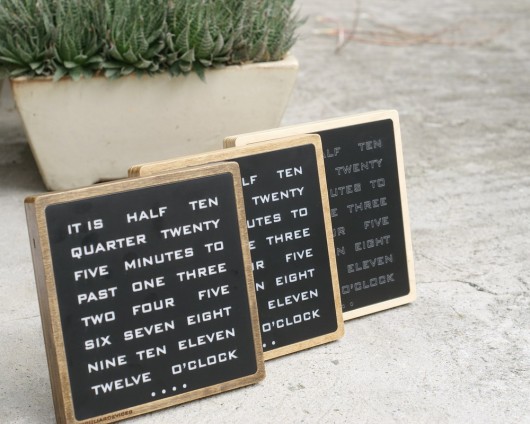 IT IS HALF TEN
QUARTER TWENTY
FIVE MINUTES TO
PAST ONE THREE
TWO FOUR FIVE
SIX SEVEN EIGHT
NINE TEN ELEVEN
TWELVE O'CLOCK
LF TEN
TWENTY
UTES TO
E THREE
R FIVE
N EIGHT
ELEVEN
O'CLOCK
LF TEN
TWENTY
UTES TO
E THREE
R FIVE
N EIGHT
ELEVEN
O'CLOCK